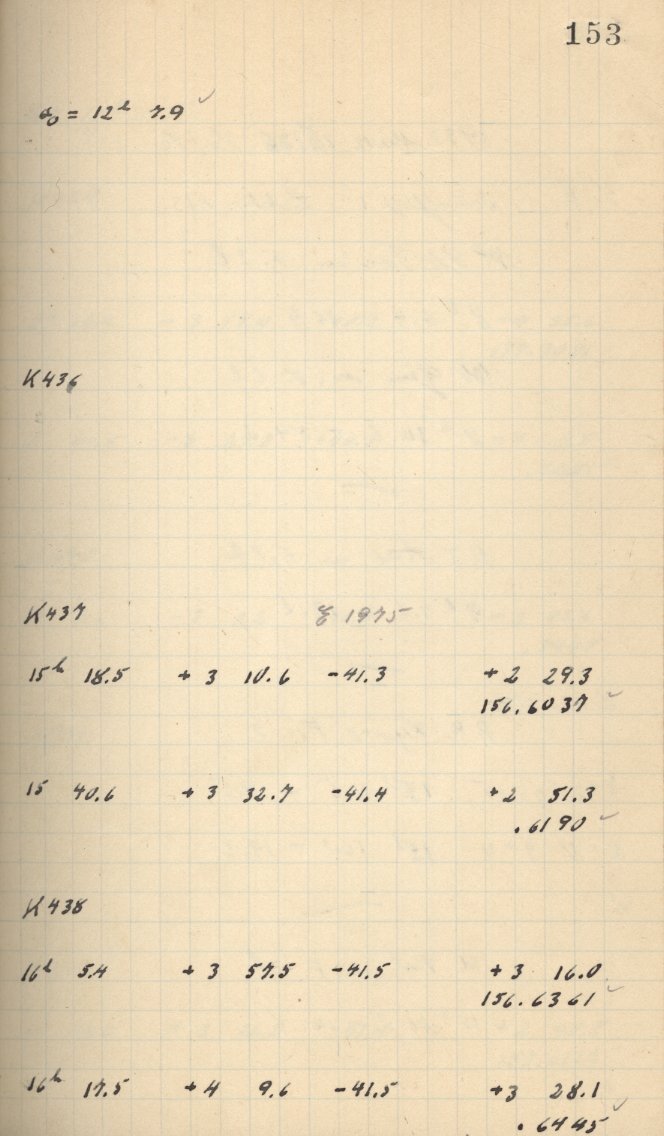 153
α₀ = 12ʰ 7.9 ✓
K436
K437 & 1975
15ʰ 18.5 + 3 10.6 -41.3 + 2 29.3
156.6037 ✓
15 40.6 + 3 32.7 -41.4 + 2 51.3
.6190 ✓
K438
16ʰ 5.4 + 3 57.5 -41.5 + 3 16.0
156.6361 ✓
16ʰ 17.5 + 4 9.6 -41.5 + 3 28.1
.6445 ✓